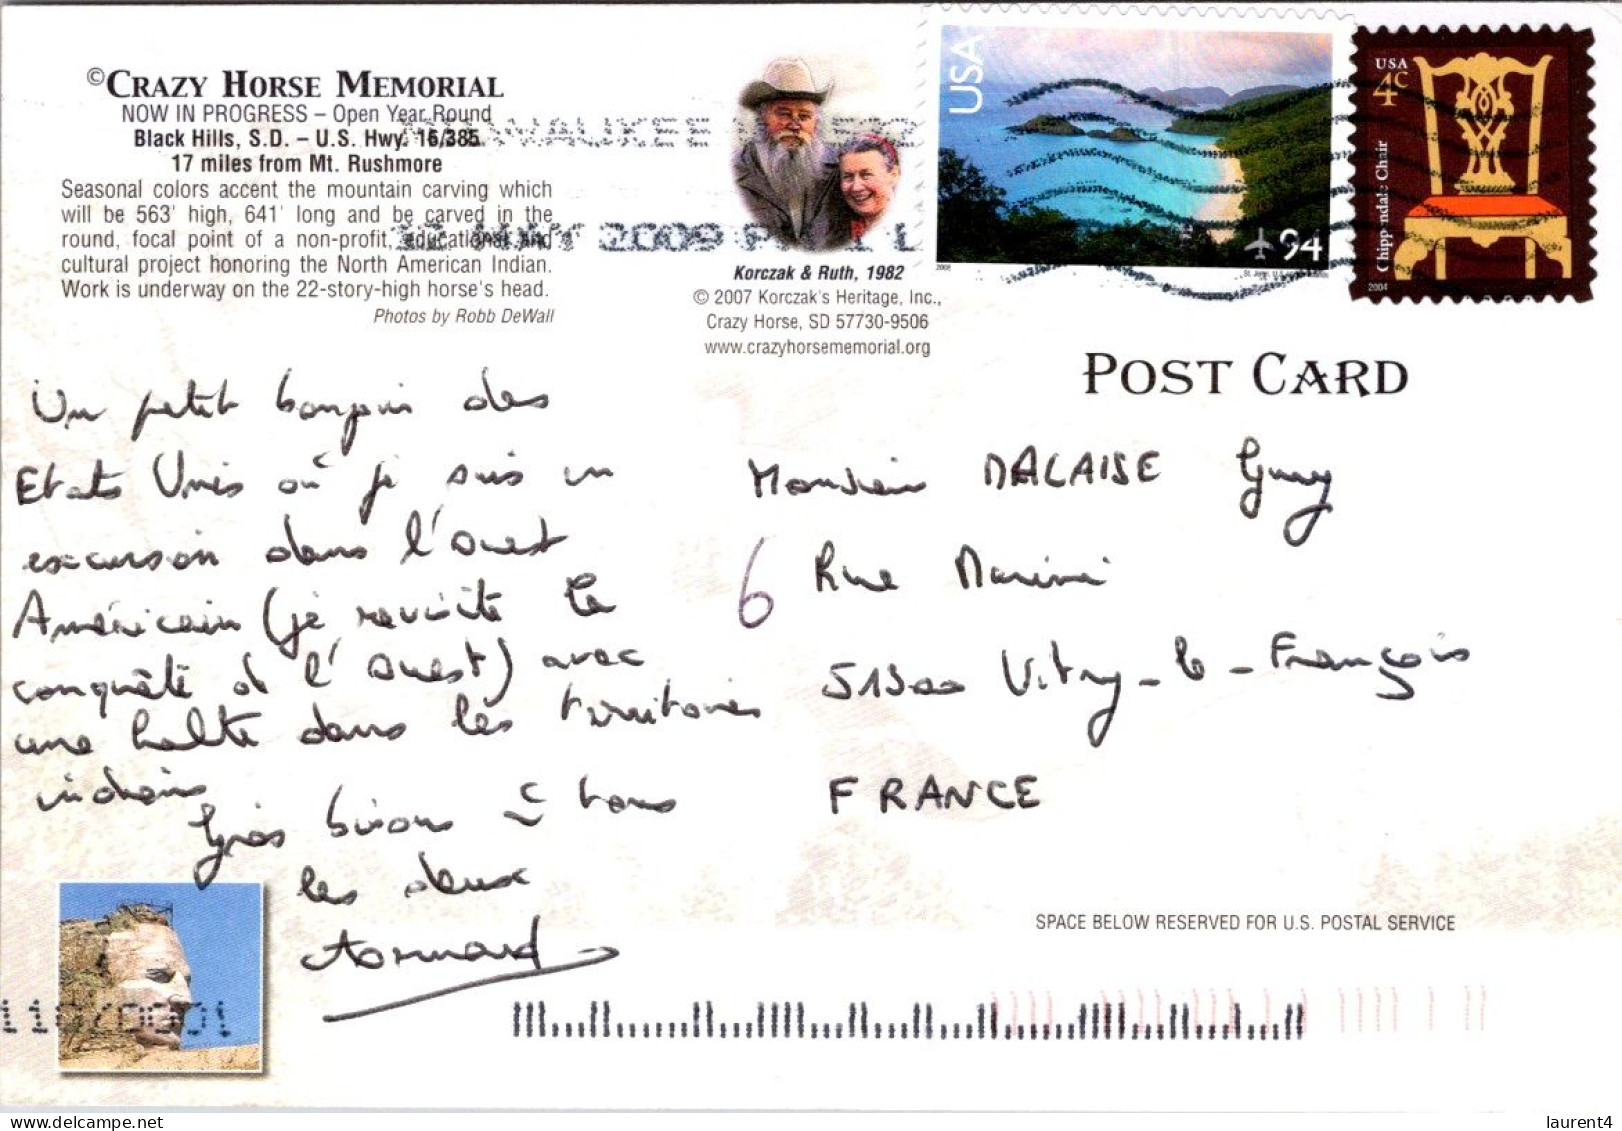 ©CRAZY HORSE MEMORIAL
NOW IN PROGRESS – Open Year Round
Black Hills, S.D. – U.S. Hwy. 16/385
17 miles from Mt. Rushmore
Seasonal colors accent the mountain carving which
will be 563' high, 641' long and be carved in the
round, focal point of a non-profit, educational and
cultural project honoring the North American Indian.
Work is underway on the 22-story-high horse's head.
Photos by Robb DeWall
Korczak & Ruth, 1982
© 2007 Korczak's Heritage, Inc.,
Crazy Horse, SD 57730-9506
www.crazyhorsememorial.org
MILWAUKEE
2009 P
USA
94
2008
USA
4c
Chippendale Chair
2004
POST CARD
Un petit bonjour des
Etats Unis où je suis en
excursion dans l'Ouest
Américain (je revisite la
conquête de l'Ouest) avec
une halte dans les territoires
indiens
Gros bisous à tous
les deux
Monsieur MALAISE Guy
6 Rue
51300 Vitry-le-François
FRANCE
SPACE BELOW RESERVED FOR U.S. POSTAL SERVICE
laurent4